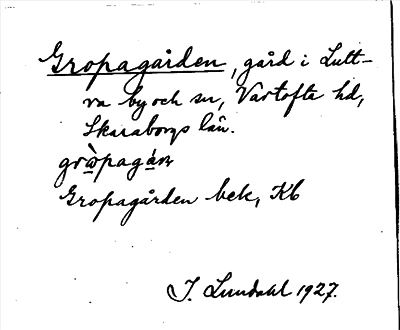 Gropagården, gård i Lutt-
ra by och sn, Vartofta hd,
Skaraborgs län.
grò̱pagá̱ṇ
Gropagården bek, Kb
I. Lundahl 1927.